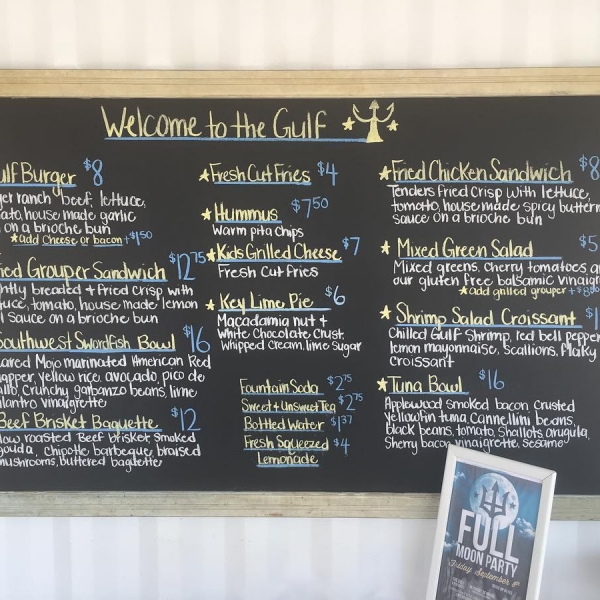 Welcome to the Gulf
ulf Burger $8
ger ranch beef, lettuce,
ato, house made garlic
on a brioche bun
Add Cheese or bacon +$1.50
ied Grouper Sandwich $12.75
ghtly breaded & fried crisp with
tuce, tomato, house made lemon
l sauce on a brioche bun
outhwest Swordfish Bowl $16
ared Mojo marinated American Red
apper, yellow rice, avocado, pico de
allo, crunchy garbanzo beans, lime
ilantro vinaigrette
Beef Brisket Baguette $12
low roasted Beef brisket, smoked
gouda, chipotle barbeque braised
mushrooms, buttered baguette
Fresh Cut Fries $4
Hummus $7.50
Warm pita Chips
Kids Grilled Cheese $7
Fresh Cut fries
Key Lime Pie $6
Macadamia nut &
White Chocolate Crust,
Whipped cream, lime sugar
Fountain Soda $2.75
Sweet & Unsweet Tea $2.75
Bottled Water $1.37
Fresh Squeezed $4
Lemonade
Fried Chicken Sandwich $8
Tenders fried crisp with lettuce,
tomatto, house made spicy buttern
sauce on a brioche bun
Mixed Green Salad $5
Mixed greens, cherry tomatoes a
our gluten free balsamic vinaigr
Add grilled grouper +$8
Shrimp Salad Croissant $1
Chilled Gulf Shrimp, red bell pepper
lemon mayonnaise, Scallions, flaky
Croissant
Tuna Bowl $16
Applewood smoked bacon crusted
Yellowfin tuna, Cannellini beans,
black beans, tomato, Shallots arugula,
Sherry bacon vinaigrette, sesame
FULL
MOON PARTY
Friday, September 8th